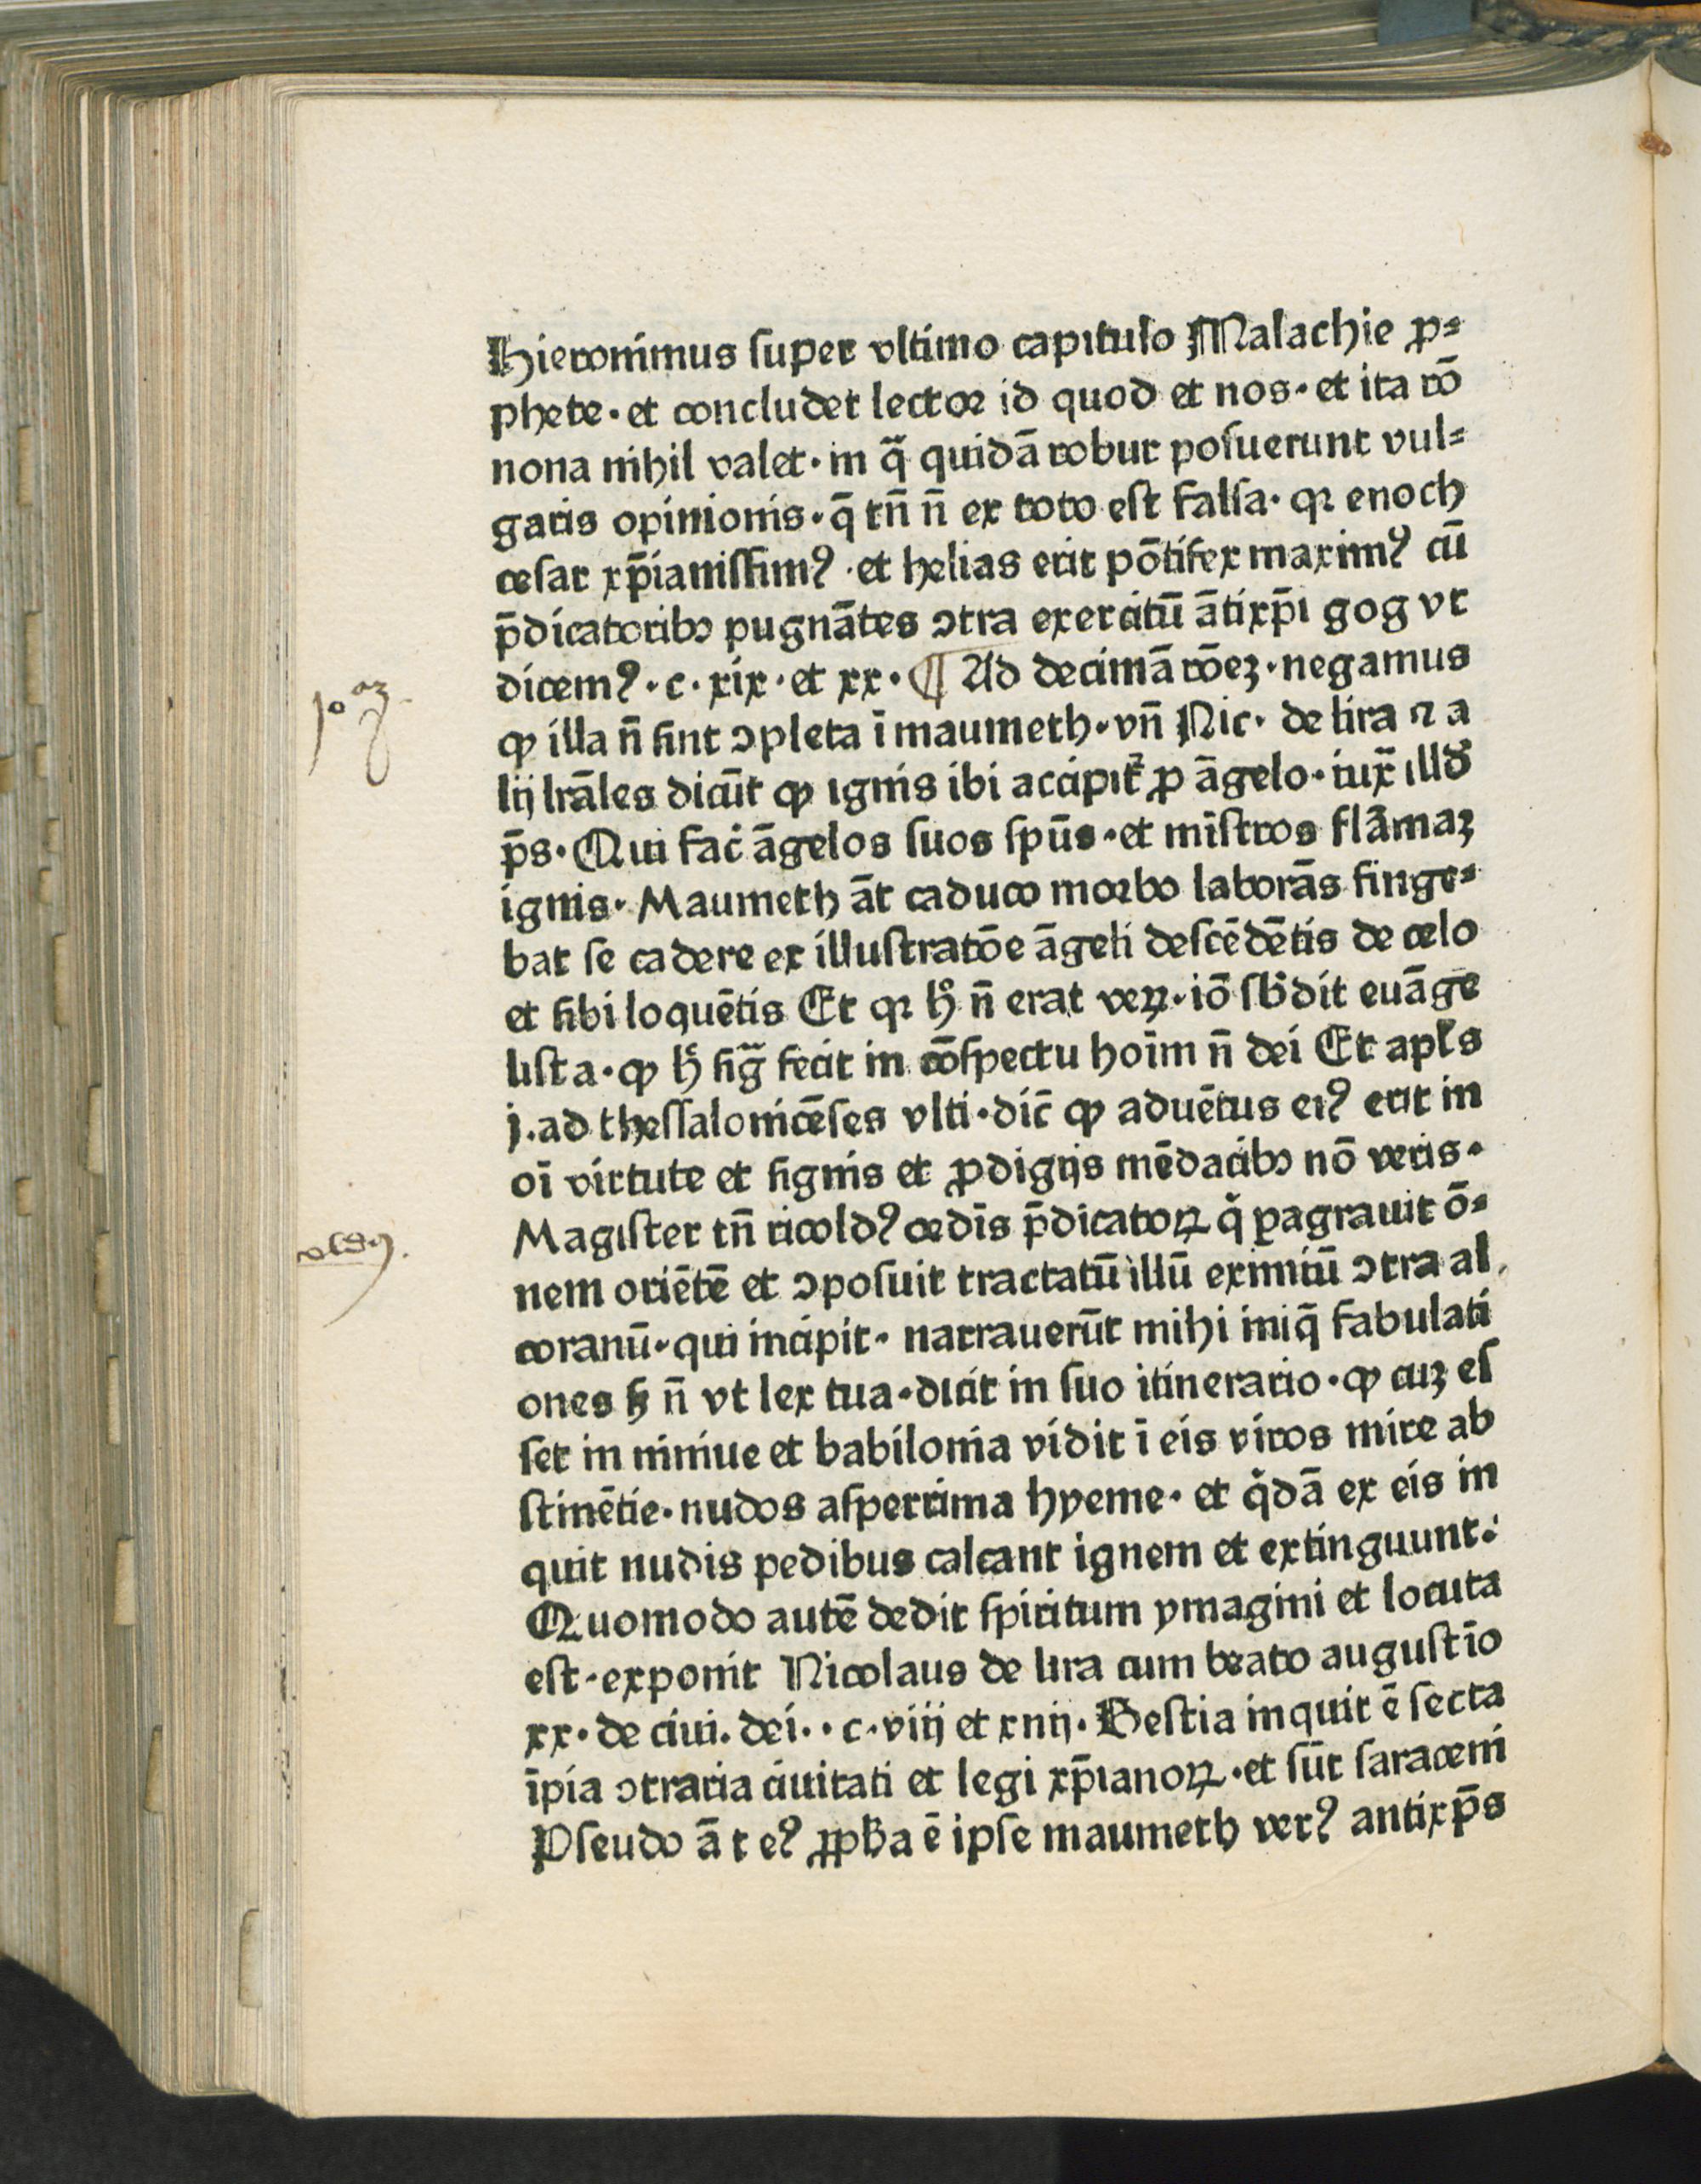 Hieronimus ſuper vltimo capitulo Malachie ꝓ⸗
phete · et concludet lectoꝛ id quod et nos · et ita rō
nona nihil valet · in q̈ quidā robur poſuerunt vul⸗
garis opinionis · q̄ tn̄ n̄ ex toto eſt falſa · qꝛ enoch
ceſar xp̄ianiſſimꝰ · et helias erit pōtifex maximꝰ cū
p̄dicatoribꝫ pugnātes ↄtra exercitū ātixp̄i gog vt
dicemꝰ · c · xix · et xx · ¶ Ad decimā rōeꝫ · negamus
ꝙ illa n̄ ſint ↄpleta ī maumeth · vn̄ Nic · de lira ⁊ a
lij lrāles dicūt ꝙ ignis ibi accipit᷑ ꝓ āgelo · iux̄ illd̄
p̄s · Qui fac̄ āgelos ſuos ſpūs · et mīſtros flāmaꝫ
ignis · Maumeth āt caduco moꝛbo laborās finge⸗
bat ſe cadere ex illuſtratōe āgeli deſcēdētis de celo
et ſibi loquētis Et qꝛ hͦ n̄ erat veꝝ · iō ſb̄dit euāge
liſta · ꝙ hͦ ſig̈ fecit in cōſpectu hoīm n̄ dei Et apl̄s
j. ad theſſalonicēſes vlti · dic̄ ꝙ aduētus eiꝰ erit in
oī virtute et ſignis et ꝓdigijs mēdacibꝫ nō veris ·
Magiſter tn̄ ricoldꝰ oꝛdīs p̄dicatoꝝ q̇ ꝑagrauit ō⸗
nem oriētē et ↄpoſuit tractatū illū eximiū ↄtra al
coranū · qui incipit · narrauerūt mihi iniq̄ fabulati
ones ſꝫ n̄ vt lex tua · dicit in ſuo itinerario · ꝙ cuꝫ eſ
ſet in niniue et babilonia vidit ī eis viros mire ab
ſtinētie · nudos aſperrima hyeme · et q̇dā ex eis in
quit nudis pedibus calcant ignem et extinguunt :
Quomodo autē dedit ſpiritum ymagini et locuta
eſt · exponit Nicolaus de lira cum beato auguſtīo
xx · de ciui. dei · · c · viij et xiiij · Beſtia inquit ē ſecta
īpia ↄtraria ciuitati et legi xp̄ianoꝝ · et ſūt ſaraceni
Pſeudo āt eꝰ ꝓpħa ē ipſe maumeth verꝰ antixp̄s